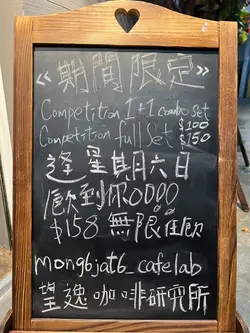 《期間限定》
Competition 1+1 combo set $100
Competition full Set $150
逢星期六日
飲到你OOOO
$158 無限任飲
mong6jat6_cafelab
望逸咖啡研究所